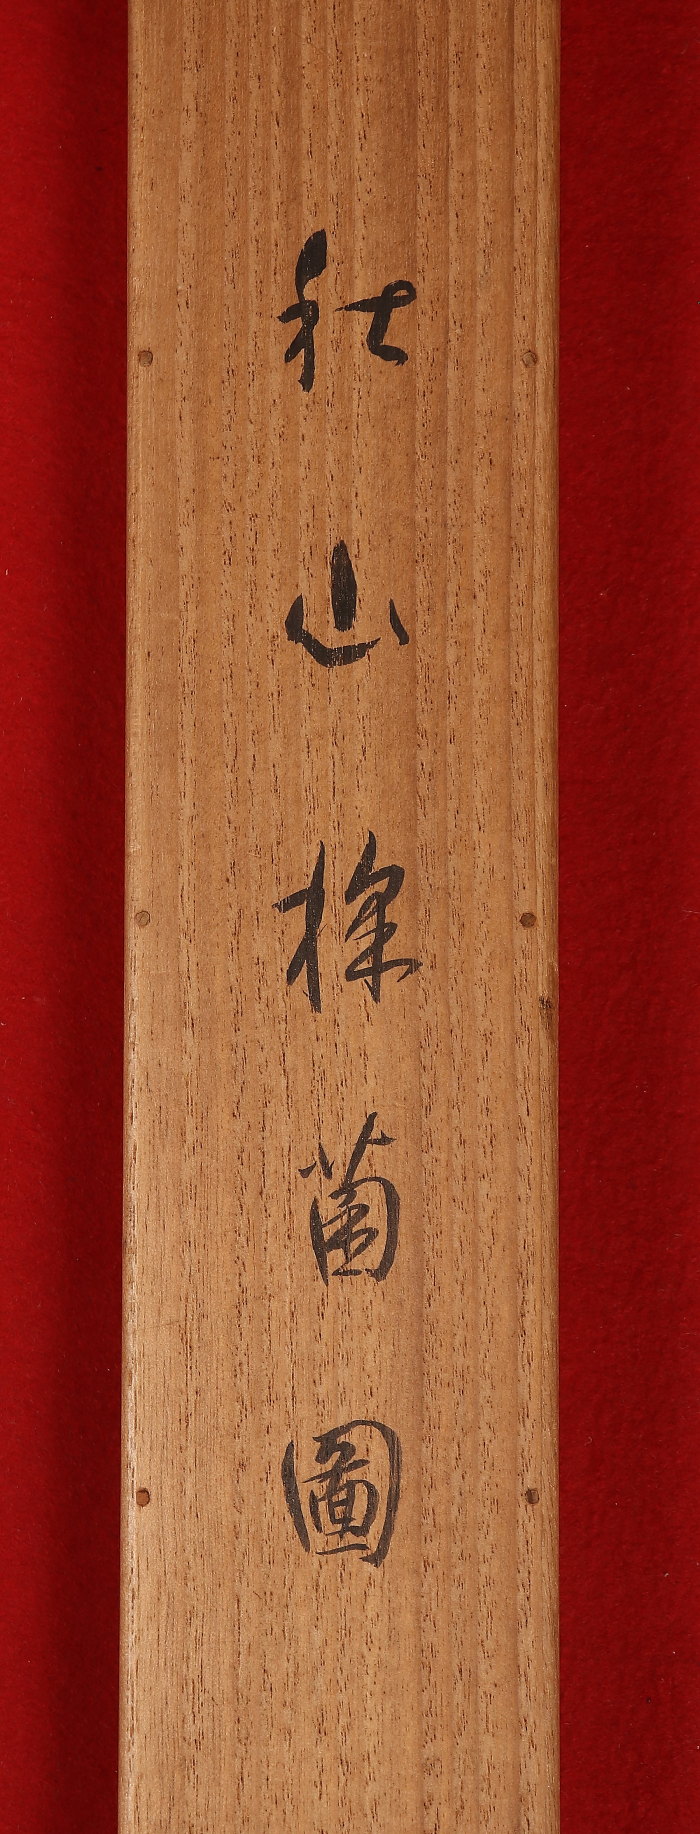 秋山採菌圖